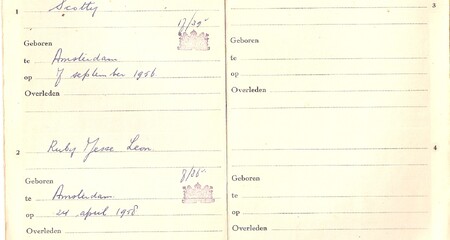 1 Scotty
17/39
Geboren
te Amsterdam
op 7 september 1956
Overleden
2 Ruby Jesse Leon
8/36
Geboren
te Amsterdam
op 24 april 1958
Overleden
3
Geboren
te
op
Overleden
4
Geboren
te
op
Overleden